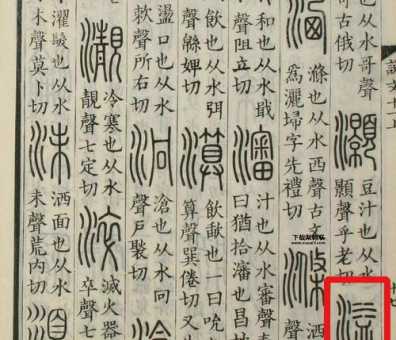 說文十一上
也从水哥聲
哥古俄切
灝
豆汁也从水
顥聲乎老切
滌也从水西聲古文
爲灑埽字先禮切
滌
洒
聲
和也从水戢
聲阻立切
瀋
汁也从水審聲春
曰猶拾瀋也昌
飲也从水弭
聲緜婢切
飲歃也一曰吮
算聲巽倦切又
盪口也从水
欶聲所右切
泂
滄也从水冋
聲戶褧切
也
冷寒也从水
靚聲七定切
淬
滅火器
卒聲七
濯髮也从水
聲莫卜切
沬
洒面也从水
未聲荒内切